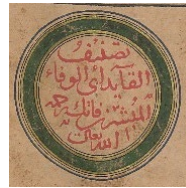 تصنيف
القائد ابى الوفاء
المبشر بن فاتك رحمه
الله تعالى